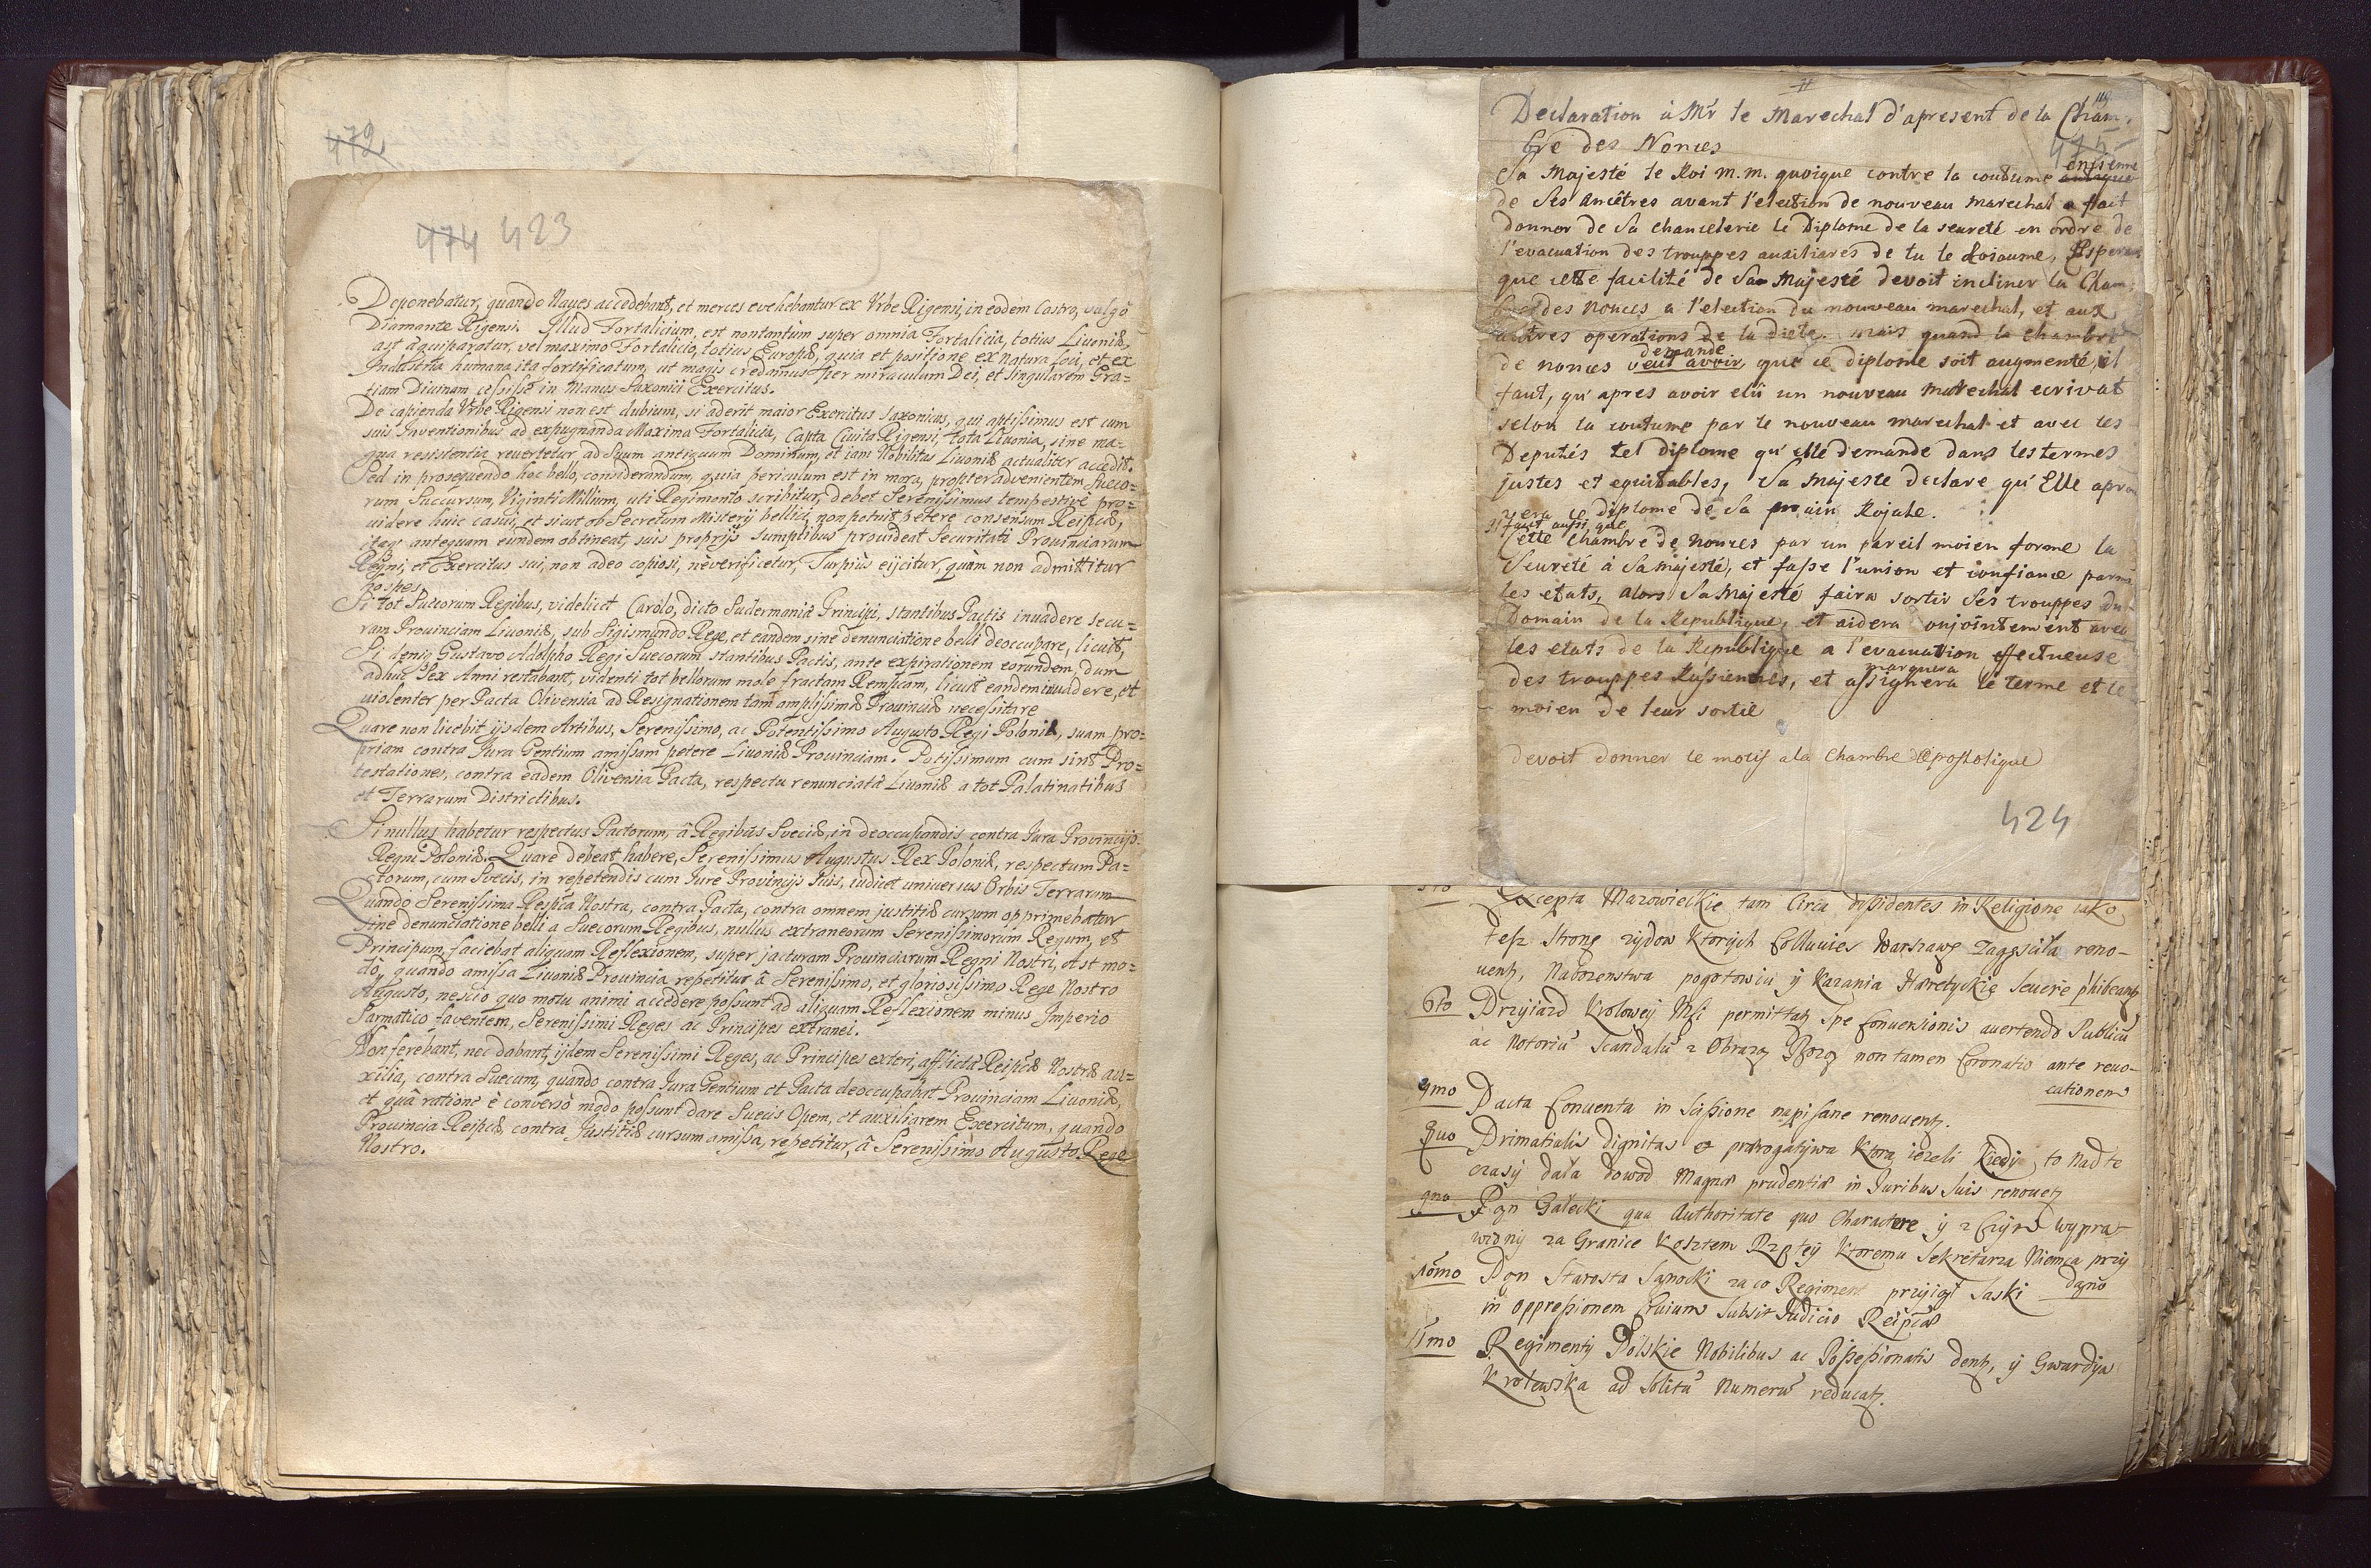 472
474 423
Deponebatur, quando Naues accedebant, et merces evehebantur ex Vrbe Rigensi, in eodem Castro, vulgò
Diamante Rigensi. Illud Fortalicium, est non tantùm super omnia Fortalicia, totius Livoniæ,
ast æquiparatur, vel maximo Fortalicio, totius Europæ, quia et positione ex natura loci, et ex
Industria humana ita fortificatum, ut magis credamus per miraculum Dei, et singularem Gra=
tiam Divinam, cessisse in manus Saxonici Exercitus.
De capienda Vrbe Rigensi non est dubium, si aderit maior Exercitus Saxonicus, qui aptissimus est cum
suis Inventionibus ad expugnanda Maxima Fortalicia, Capta Civita Rigensi, tota Livonia, sine ma=
gna resistentia revertetur ad suum antiquum Dominum, et iam Nobilitas Livoniæ actualiter accedit.
Sed in prosequendo hoc bello, considerandum, quia periculum est in mora, propter advenientem Sueco=
rum Succursum, Viginti Millium, uti Regimonto scribitur, debet Serenissimus tempestivè pro=
uidere huic casui, et sicut ob Secretum Misterij bellici, non potuit petere consensum Reipcæ,
itaq; antequam eundem obtineat, suis proprijs sumptibus prouideat Securitati Prouinciarum
Regni, et Exercitus sui, non adeo copiosi, nè verificetur, Turpiùs eijcitur, quàm non admittitur
hospes.
Si tot Suecorum Regibus, videlicet Carolo, dicto Sudermaniæ Principi, stantibus Pactis invadere secu=
ram Prouinciam Livoniæ, sub Sigismundo Rege, et eandem sine denunciatione belli deoccupare, licuit,
Si deniq; Gustavo Adolpho Regi Suecorum, stantibus Pactis, ante expirationem eorundem, dum
adhuc Sex Anni restabant, videnti tot bellorum mole fractam Rempcam, licuit eandem invadere, et
violenter per Pacta Olivensia ad Resignationem tam amplissimæ Prouinciæ necessitare
Quare non licebit ijsdem Artibus, Serenissimo, ac Potentissimo Augusto Regi Poloniæ, suam pro=
priam contra Jura Gentium amissam petere Livoniæ Prouinciam. Potissimum cum sint Pro=
testationes, contra eadem Olivensia Pacta, respectu renunciatæ Livoniæ a tot Palatinatibus
et Terrarum Districtibus.
Si nullus habetur respectus Pactorum, â Regibus Sveciæ, in deoccupandis contra Jura Provincijs
Regni Poloniæ. Quare debeat habere, Serenissimus Augustus Rex Poloniæ, respectum Pa=
ctorum, cum Svecis, in repetendis cum Jure Provincijs suis, iudicet universus Orbis Terrarum
Quando Serenissima Respca Nostra, contra Pacta, contra omnem justitiæ cursum opprimebatur
sine denunciatione belli a Suecorum Regibus, nullus extraneorum Serenissimorum Regum, et
Principum, faciebat aliquam Reflexionem, super jacturam Prouinciarum Regni Nostri, Ast mo=
dò, quando amissa Livoniæ Prouincia repetitur â Serenissimo, et gloriosissimo Rege Nostro
Augusto, nescio quo motu animi accedere possunt ad aliquam Reflexionem minus Imperio
Sarmatico faventem, Serenissimi Reges ac Principes extranei.
Non ferebant, nec dabant, ijdem Serenissimi Reges, ac Principes exteri, afflictæ Reipcæ Nostræ au=
xilia, contra Suecum, quando contra Jura Gentium et Pacta deoccupabat Prouinciam Livoniæ,
et quâ ratione è converso modo possunt dare Suecis Opem, et auxiliarem Exercitum, quando
Provincia Reipcæ, contra Justitiæ cursum amissa, repetitur, â Serenissimo Augusto Rege
Nostro.
Declaration à Mr le Marechal d'apresent de la Cham,
bre des Nonces
Sa Majesté le Roi m.m. quoique contre la coutume antique
de Ses Ancêtres avant l'election de nouveau marechal a fait
donner de Sa chancelerie le Diplome de la seureté en ordre de
l'evacuation des trouppes auxiliares de tu le Roiaume,
que cette facilité de Sa Majesté devoit incliner la Cham,
bre des nonces a l'election du nouveau marechal, et aux
autres operations de la diete. mais quand la chambre
demande
de nonces veut avoir, que ce diplome soit augmenté, il
faut, qu'apres avoir elù un nouveau marechal ecrivat
selon la coutume par le nouveau marechal et avec les
Deputés tel diplome qu'elle demande dans les termes
justes et equitables, Sa Majeste declare qu'Elle apro
vera ce diplome de Sa main Rojale.
Il faut aussi que
Cette chambre de nonces par un pareil moien forme la
Seureté à Sa majesté, et fasse l'union et confiance parmi
les etats, alors Sa Majesté faira sortir Ses trouppes du
Domain de la Republique, et aidera conjointement avec
les etats de la Republique a l'evacuation effectueuse
marquera
des trouppes Russiennes, et assignera le terme et le
moien de leur sortie
devoit donner le motif a la Chambre
424
Excepta Mazowieckie tam Circa dissidentes in Religione iako
tesz strony zydow ktorych Colluuies Warszawę zagęsciła reno-
uentr, Nabozenstwa pogotowiu ÿ Kazania Haeretyckie seuere phibeantr
6to Przyiazd Krolowey Msi permittatr spe Conuersionis auertendo Publicũ
ac Notoriũ Scandalũ z Obrazą Bozą non tamen Coronatio ante reuo-
cationem
7mo Pacta Conuenta in Scissione napisane renouentr.
8uo Primatialis dignitas et praerogatywa ktora iezeli kiedy, to nad te
czasy dała dowod Magnae prudentiae in Juribus suis renouetr
9no Pan Gałecki qua Authoritate quo Charactere ÿ z Czym wypra-
wiony za Granice kosztem Rzptey ktoremu Sekretarza Niemca przy
dano
10mo Pan Starosta Sanocki za co Regiment przyiął Saski
in oppressionem Ciuium subsit Judicio Reipcae
11mo Regimenty Polskie Nobilibus ac Possessionatis dentr, ÿ Gwardya
Krolewska ad Solitũ Numerũ reducatr.